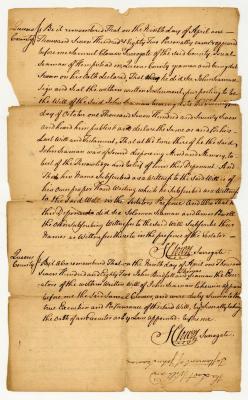 Queens County ss Be it remembered That on the Ninth day of April one
Thousand Seven Hundred & Eighty Personally came & appeared
before me Samuel Clowes Surrogate of the said County
Seaman of in Queens County yeoman and being duly
Sworn on his Oath declared That he did See John Seaman
Sign and Seal the within written Instrument purporting to be
the Will of the Said John Seaman bearing date the
day of October one Thousand Seven Hundred and Seventy Seven
and heard him publish and declare the Same as and for his
Last Will and Testament, that at the time thereof he the Said
John Seaman was of Sound disposing Mind and Memory to
best of the Knowledge and belief of him this Deponent, and
That his Name Subscribed as a Witness to the Said Will is of
his own proper Hand Writing which he Subscribed as a Witness
to the Said Will in the Testators Presence And That he
this Deponent did See Solomon Seaman and
the other Subscribing Witnesses to the Said Will Subscribe their
Names as Witnesses thereto in the presence of the Testator
S Clowes
Surrogate
Queens County ss Be it also remembered That on the Ninth day of April one Thousand
Seven Hundred and Eighty John and Seaman the Executors
of the within Written Will of John Seaman
before me the Said Samuel Clowes, and were duly Sworn to the
true Execution and Performance of the Said Will, by taking
the Oath of an Executor as by Law appointed before me
S Clowes Surrogate